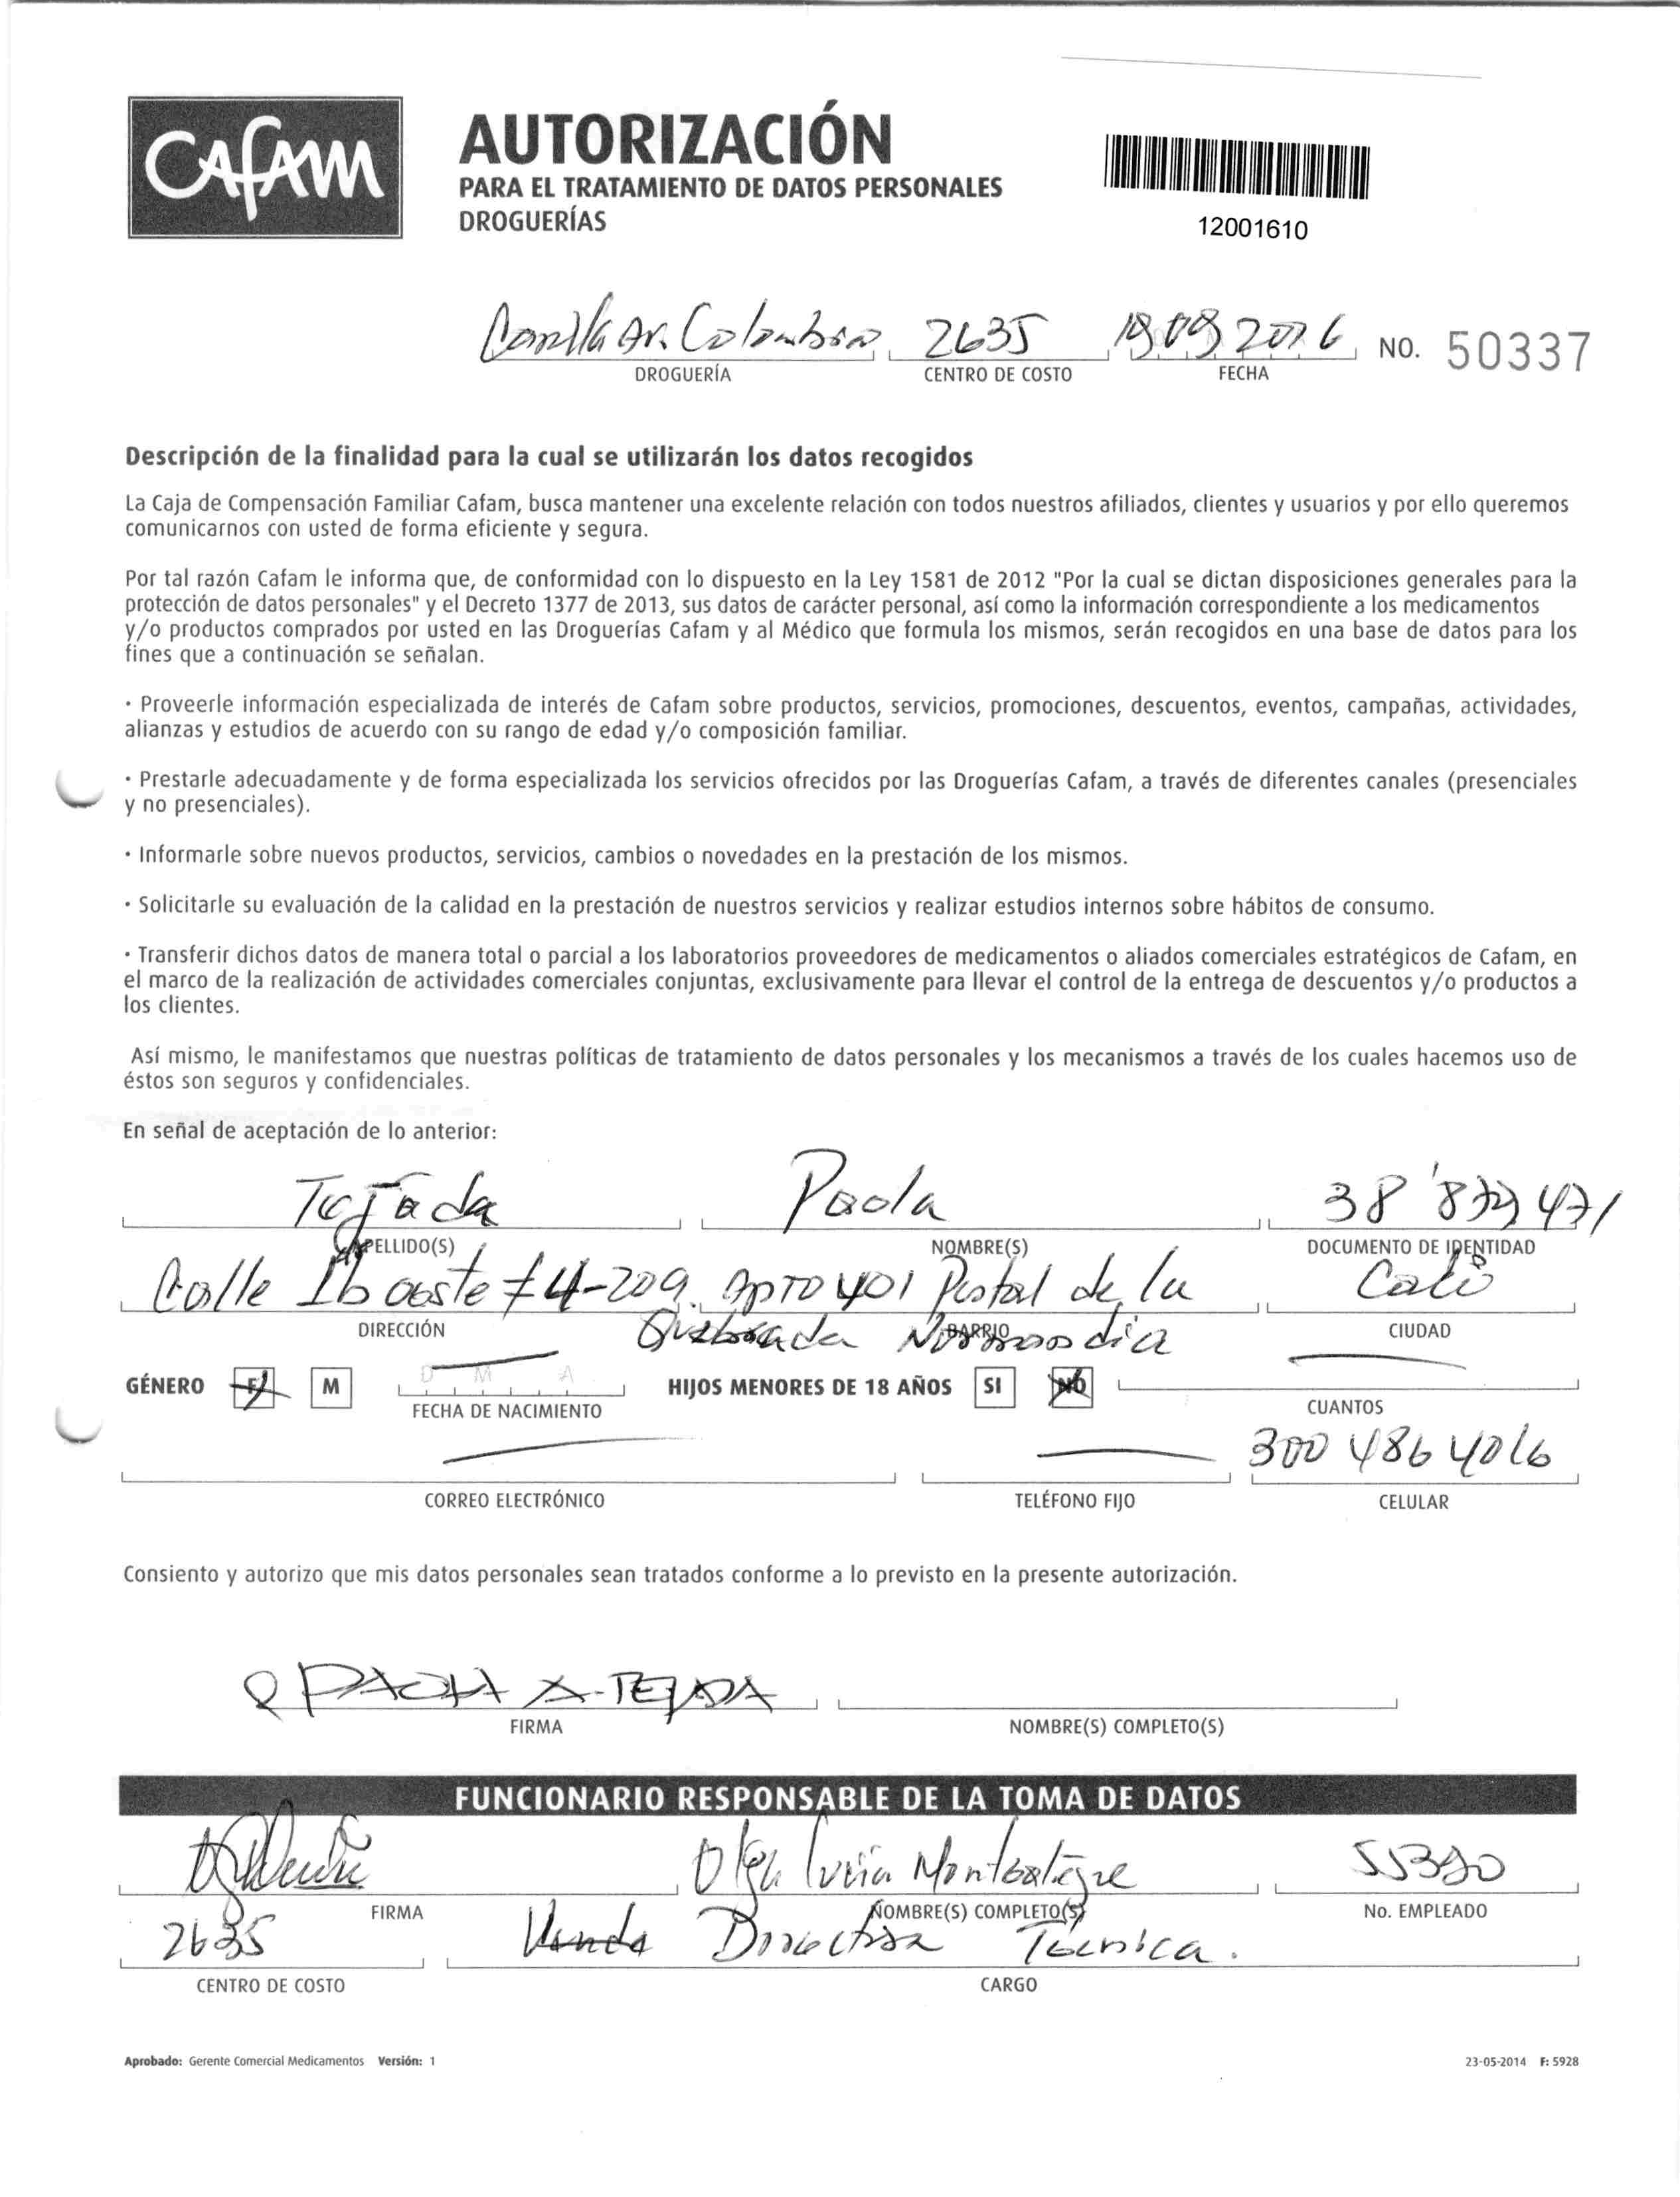 Cafam
AUTORIZACIÓN
PARA EL TRATAMIENTO DE DATOS PERSONALES
DROGUERÍAS
12001610
Av. Colombia 2635 2016 NO. 50337
DROGUERÍA CENTRO DE COSTO FECHA
Descripción de la finalidad para la cual se utilizarán los datos recogidos
La Caja de Compensación Familiar Cafam, busca mantener una excelente relación con todos nuestros afiliados, clientes y usuarios y por ello queremos
comunicarnos con usted de forma eficiente y segura.
Por tal razón Cafam le informa que, de conformidad con lo dispuesto en la Ley 1581 de 2012 "Por la cual se dictan disposiciones generales para la
protección de datos personales" y el Decreto 1377 de 2013, sus datos de carácter personal, así como la información correspondiente a los medicamentos
y/o productos comprados por usted en las Droguerías Cafam y al Médico que formula los mismos, serán recogidos en una base de datos para los
fines que a continuación se señalan.
· Proveerle información especializada de interés de Cafam sobre productos, servicios, promociones, descuentos, eventos, campañas, actividades,
alianzas y estudios de acuerdo con su rango de edad y/o composición familiar.
· Prestarle adecuadamente y de forma especializada los servicios ofrecidos por las Droguerías Cafam, a través de diferentes canales (presenciales
y no presenciales).
· Informarle sobre nuevos productos, servicios, cambios o novedades en la prestación de los mismos.
· Solicitarle su evaluación de la calidad en la prestación de nuestros servicios y realizar estudios internos sobre hábitos de consumo.
· Transferir dichos datos de manera total o parcial a los laboratorios proveedores de medicamentos o aliados comerciales estratégicos de Cafam, en
el marco de la realización de actividades comerciales conjuntas, exclusivamente para llevar el control de la entrega de descuentos y/o productos a
los clientes.
Así mismo, le manifestamos que nuestras políticas de tratamiento de datos personales y los mecanismos a través de los cuales hacemos uso de
éstos son seguros y confidenciales.
En señal de aceptación de lo anterior:
Tejada Paola
APELLIDO(S) NOMBRE(S) DOCUMENTO DE IDENTIDAD
Calle 1b oeste # 4-209 apto 401 Portal de la Cali
DIRECCIÓN BARRIO CIUDAD
Quebrada Normandia
GÉNERO F M D M A HIJOS MENORES DE 18 AÑOS SI NO
FECHA DE NACIMIENTO CUANTOS
300 486 4016
CORREO ELECTRÓNICO TELÉFONO FIJO CELULAR
Consiento y autorizo que mis datos personales sean tratados conforme a lo previsto en la presente autorización.
PAOLA A. TEJADA
FIRMA NOMBRE(S) COMPLETO(S)
FUNCIONARIO RESPONSABLE DE LA TOMA DE DATOS
Olga Lucia Montealegre
FIRMA NOMBRE(S) COMPLETO(S) No. EMPLEADO
2635 Directora Técnica.
CENTRO DE COSTO CARGO
Aprobado: Gerente Comercial Medicamentos Versión: 1 23-05-2014 F: 5928